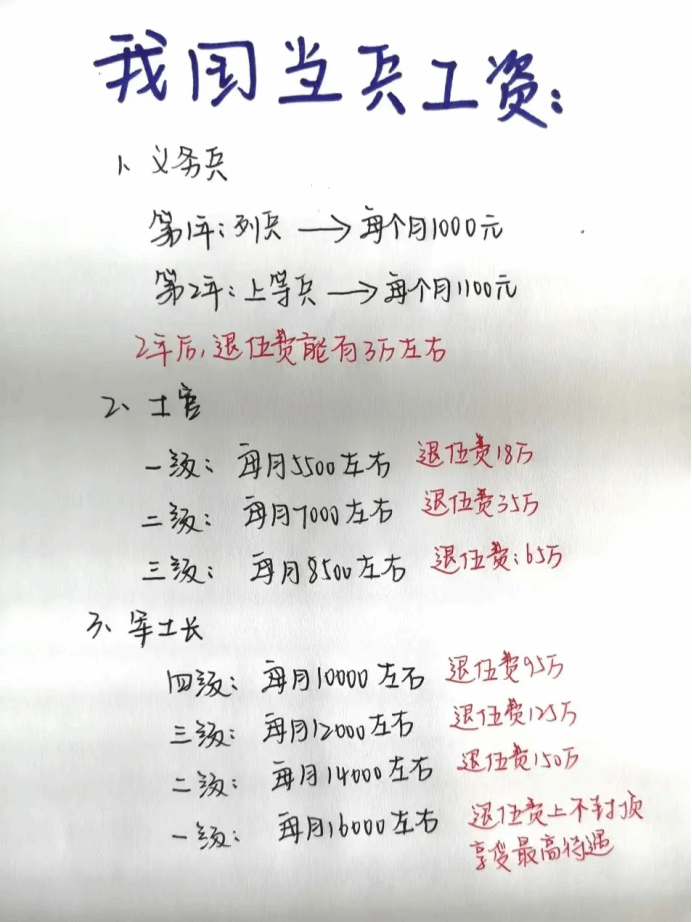 我国当兵工资:
1、义务兵
第1年:列兵 → 每个月1000元
第2年:上等兵 → 每个月1100元
2年后,退伍费能有3万左右
2、士官
一级: 每月5500左右 退伍费18万
二级: 每月7000左右 退伍费35万
三级: 每月8500左右 退伍费:65万
3、军士长
四级: 每月10000左右 退伍费95万
三级: 每月12000左右 退伍费125万
二级: 每月14000左右 退伍费150万
一级: 每月16000左右 退伍费上不封顶
享受最高待遇